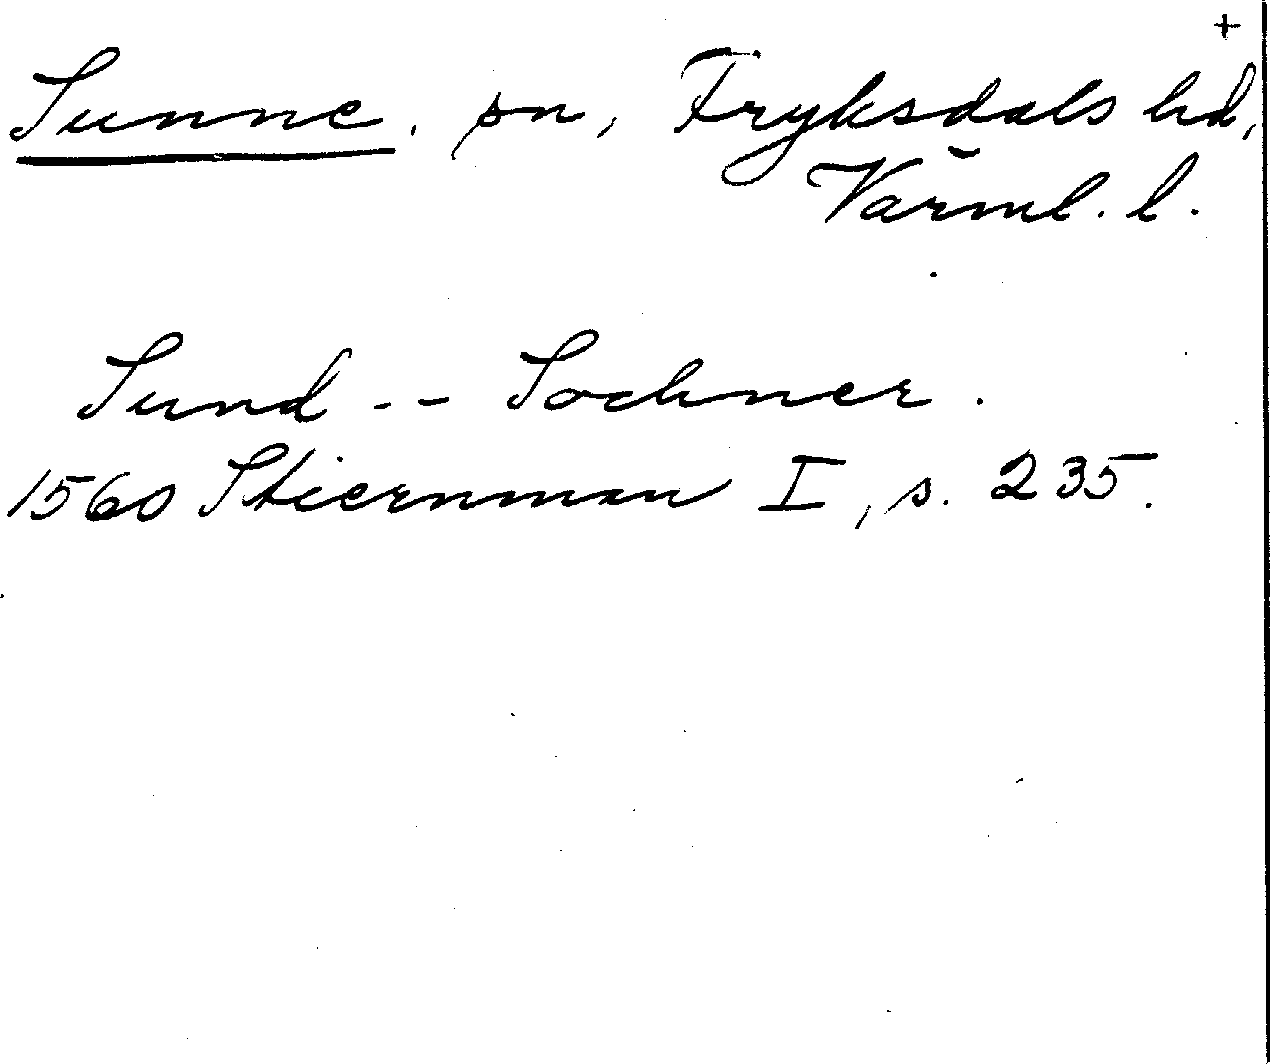 +
Sunne, sn, Fryksdals hd,
Värml. l.
Sund -- Sochner.
1560 Stiernman I, s. 235.